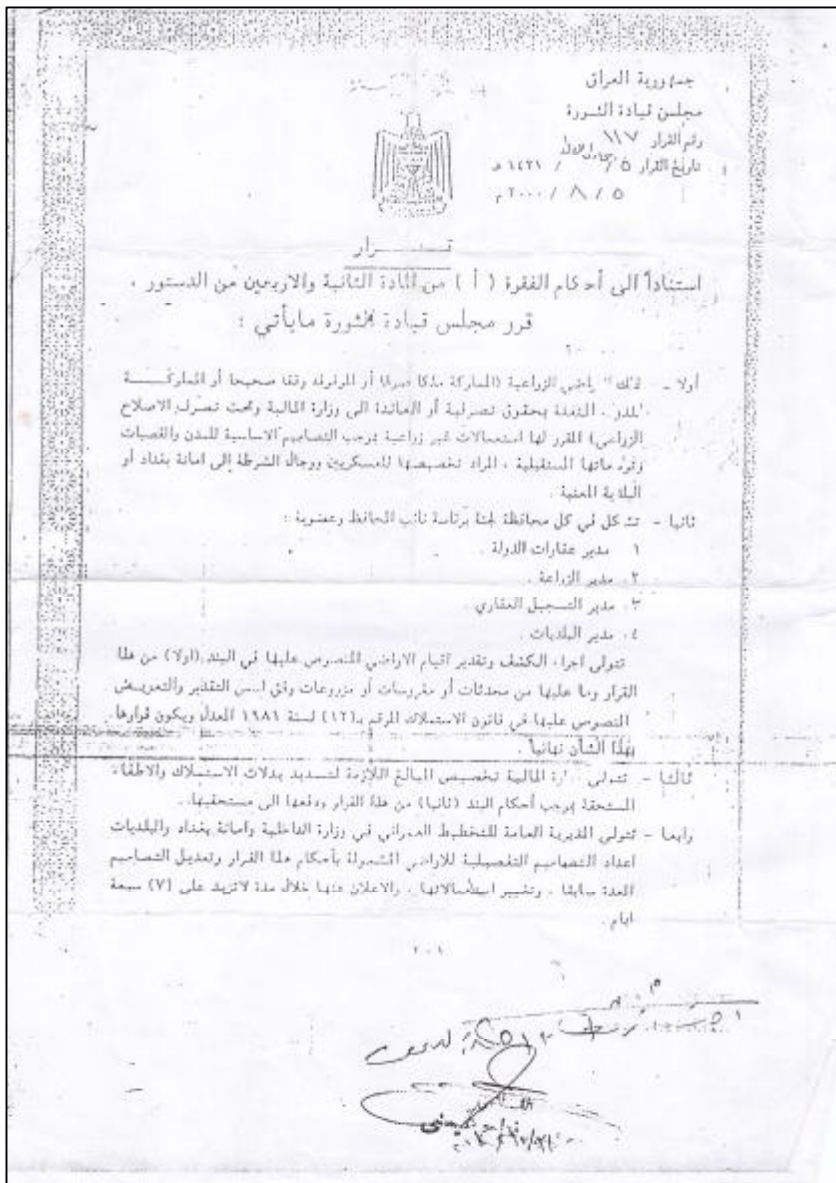 جمهورية العراق
مجلس قيادة الثورة
رقم القرار ١١٧
تاريخ القرار ٥ / جمادي الاول / ١٤٢١ هـ
٥ / ٨ / ٢٠٠٠ م
قـــرار
استناداً الى أحكام الفقرة ( أ ) من المادة الثانية والاربعين من الدستور .
قرر مجلس قيادة الثورة مايأتي :
أولا - الزراعية (المملوكة ملكا صرفا أو الموقوفة وقفا صحيحا أو المملوكة
بحقوق تصرفية أو العائدة الى وزارة المالية وتحت تصرف الاصلاح
الزراعي) المقرر لها استعمالات غير زراعية بموجب التصاميم الاساسية للمدن والقصبات
المستقبلية ، المراد تخصيصها للعسكريين ورجال الشرطة إلى امانة بغداد أو
البلدية المعنية .
ثانيا - تشكل في كل محافظة لجنة برئاسة نائب المحافظ وعضوية :
١ مدير عقارات الدولة .
٢. مدير الزراعة .
٣. مدير التسجيل العقاري
٤. مدير البلديات .
تتولى اجراء الكشف وتقدير اقيام الاراضي المنصوص عليها في البند (اولا) من هذا
القرار وما عليها من محدثات أو مغروسات أو مزروعات وفق اسس التقدير والتعويض
المنصوص عليها في قانون الاستملاك المرقم بـ(١٢) لسنة ١٩٨١ المعدل ويكون قرارها
بهذا الشأن نهائياً .
ثالثا - تتولى وزارة المالية تخصيص المبالغ اللازمة لتسديد بدلات الاستملاك والاطفاء
المستحقة بموجب أحكام البند (ثانيا) من هذا القرار ودفعها الى مستحقيها .
رابعا - تتولى المديرية العامة للتخطيط العمراني في وزارة الداخلية وامانة بغداد والبلديات
اعداد التصاميم التفصيلية للاراضي المشمولة بأحكام هذا القرار وتعديل التصاميم
المعدة سابقا ، وتغيير استعمالاتها ، والاعلان عنها خلال مدة لاتزيد على (٧) سبعة
ايام .
١ - ٢